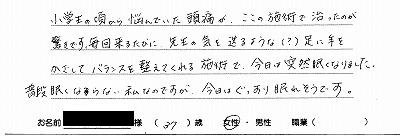 小学生の頃から悩んでいた頭痛が、ここの施術で治ったのが
驚きです。毎回来るたびに、先生の気を送るような(?)足に手を
かざしてバランスを整えてくれる施術で、今日は突然眠くなりました。
普段眠くならない私なのですが、今日はぐっすり眠れそうです。
お名前 様 (37)歳 女性・男性 職業( )